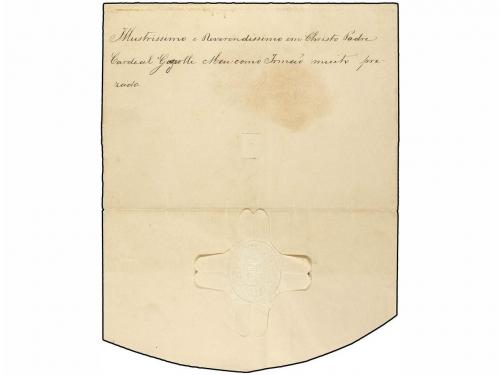 Illustrissimo e Reverendissimo em Christo Padre
Cardeal Meu como Irmaõ muito pre
zado